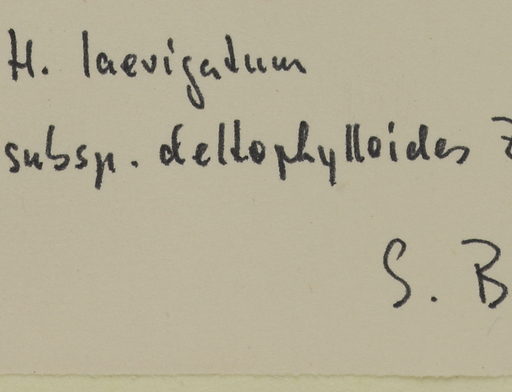 H. laevigatum
subsp. deltophylloides Z
S. B